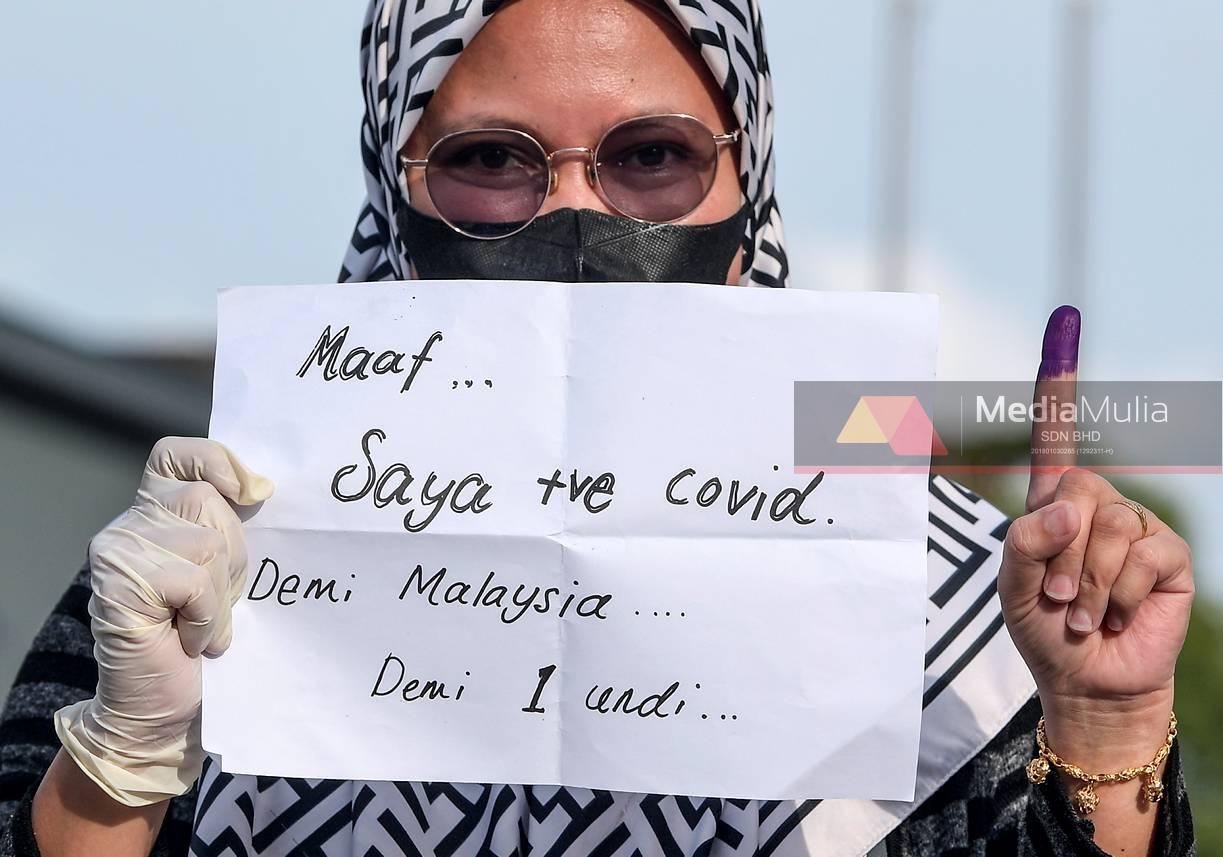 Maaf...
Saya +ve covid.
Demi Malaysia....
Demi 1 undi...
MediaMulia
SDN BHD
201801030285 (1292311-H)